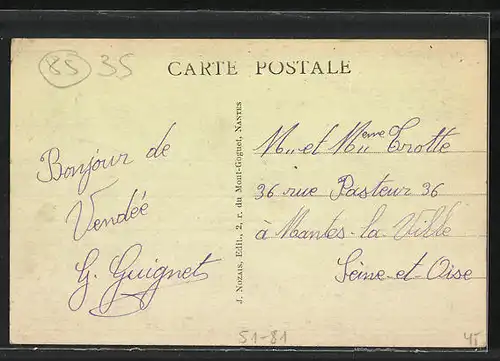 85 35
CARTE POSTALE
Bonjour de
Vendée
G. Guignet
J. Nozais, Edit., 2, r. du Mont-Goguet, Nantes
Mr et Mme Trotte
36 rue Pasteur 36
à Mantes-la Ville
Seine-et-Oise
51-81